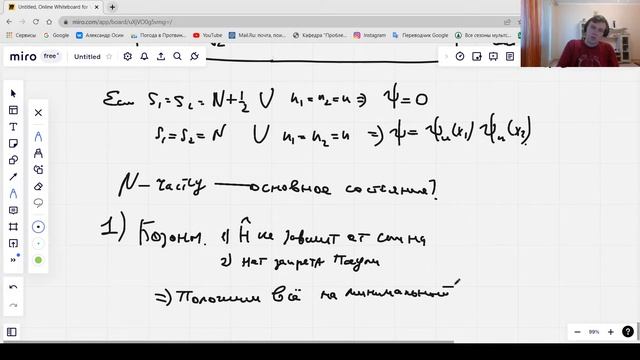 Untitled, Online Whiteboard for
miro.com/app/board/uXjVO0g5vmg=/
Сервисы Google Александр Осин Погода в Протвин... YouTube Mail.Ru: почта, пои... Кафедра "Пробле... Instagram Переводчик Google Все сезоны мульт...
miro free Untitled
Если S₁ = S₂ = N + 1/2 U n₁ = n₂ = n => Ψ = 0
S₁ = S₂ = N U n₁ = n₂ = n => Ψ = Ψₙ(x₁) Ψₙ(x₂)
N – частиц — основное состояние?
1) Бозоны. 1) Ĥ не зависит от спина
2) нет запрета Паули
=) Положим всё на минимальный
99%